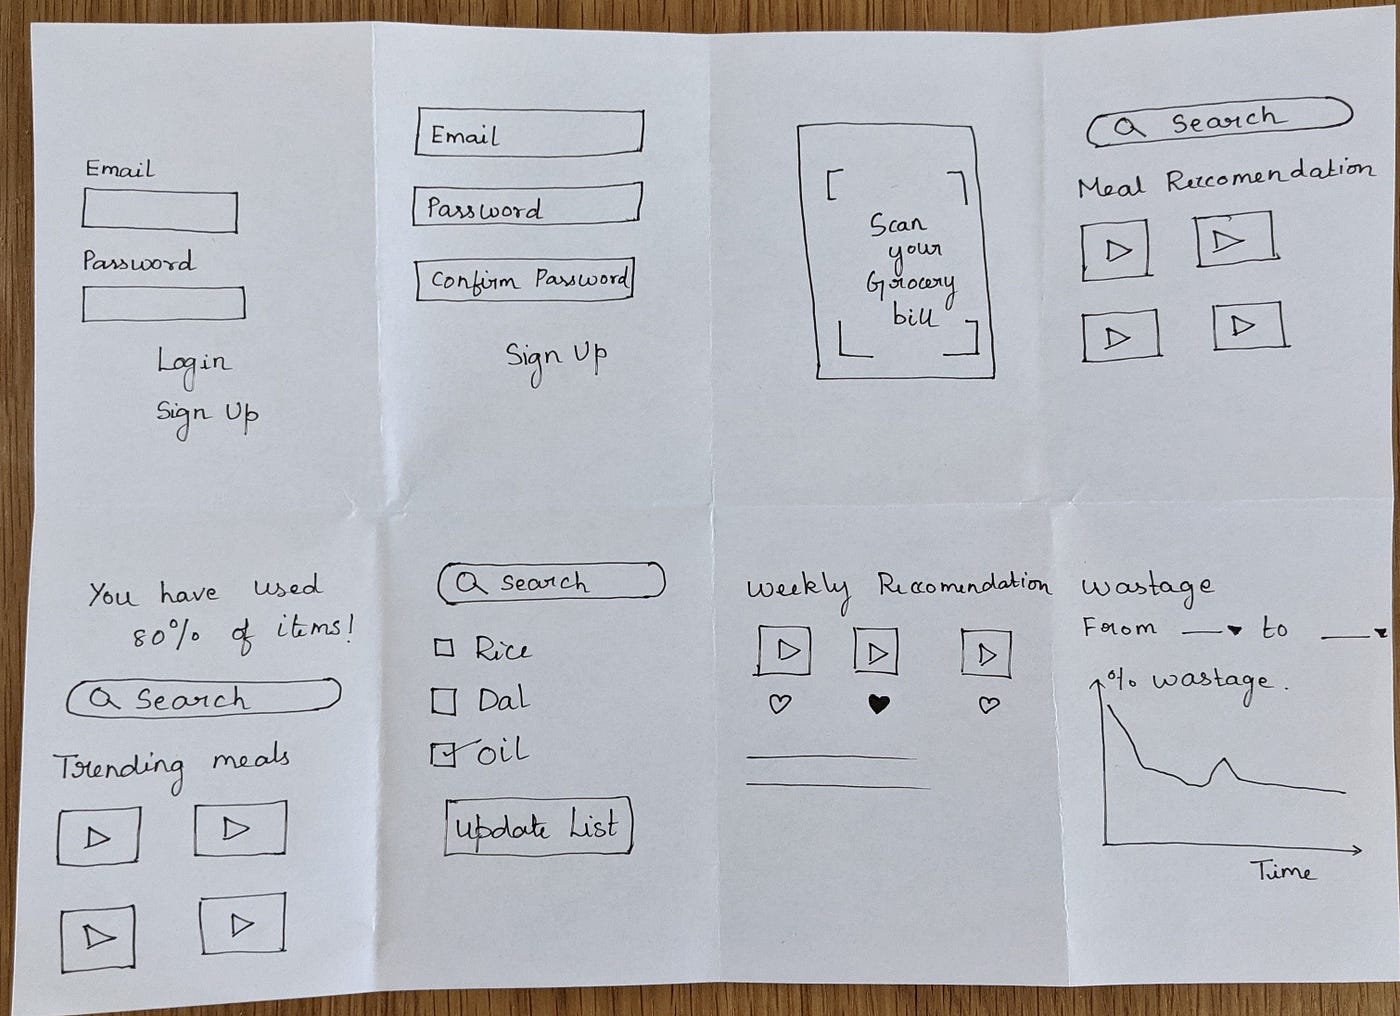 Email
Password
Login
Sign Up
Email
Password
Confirm Password
Sign Up
Scan
your
Grocery
bill
Search
Meal Reccomendation
You have used
80% of items!
Search
Trending meals
Search
Rice
Dal
Oil
Update List
Weekly Reccomendation
Wastage
From to
% wastage.
Time